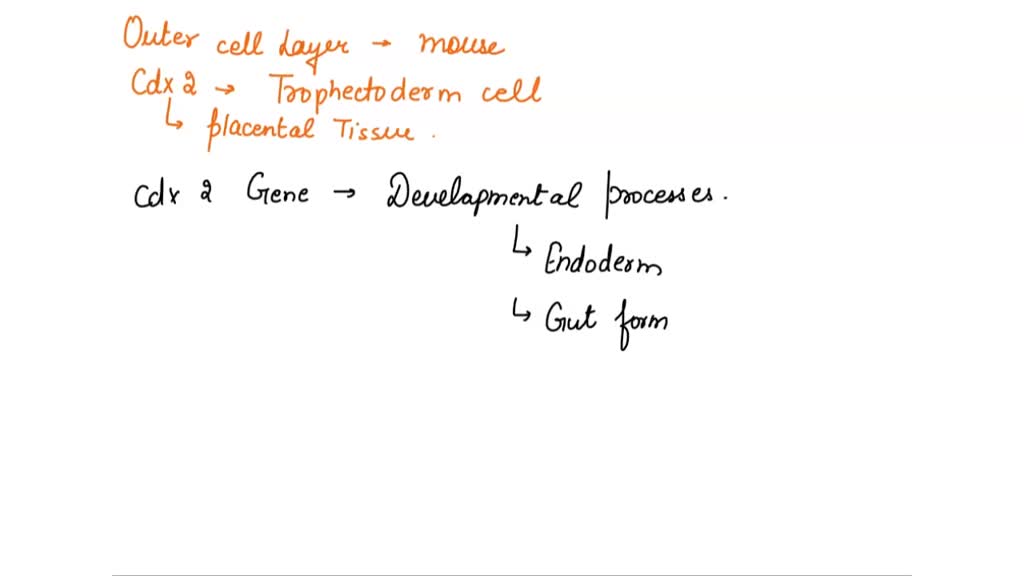 Outer cell Layer → mouse
Cdx 2 → Trophectoderm cell
↳ placental Tissue .
Cdx 2 Gene → Developmental processes .
↳ Endoderm
↳ Gut form